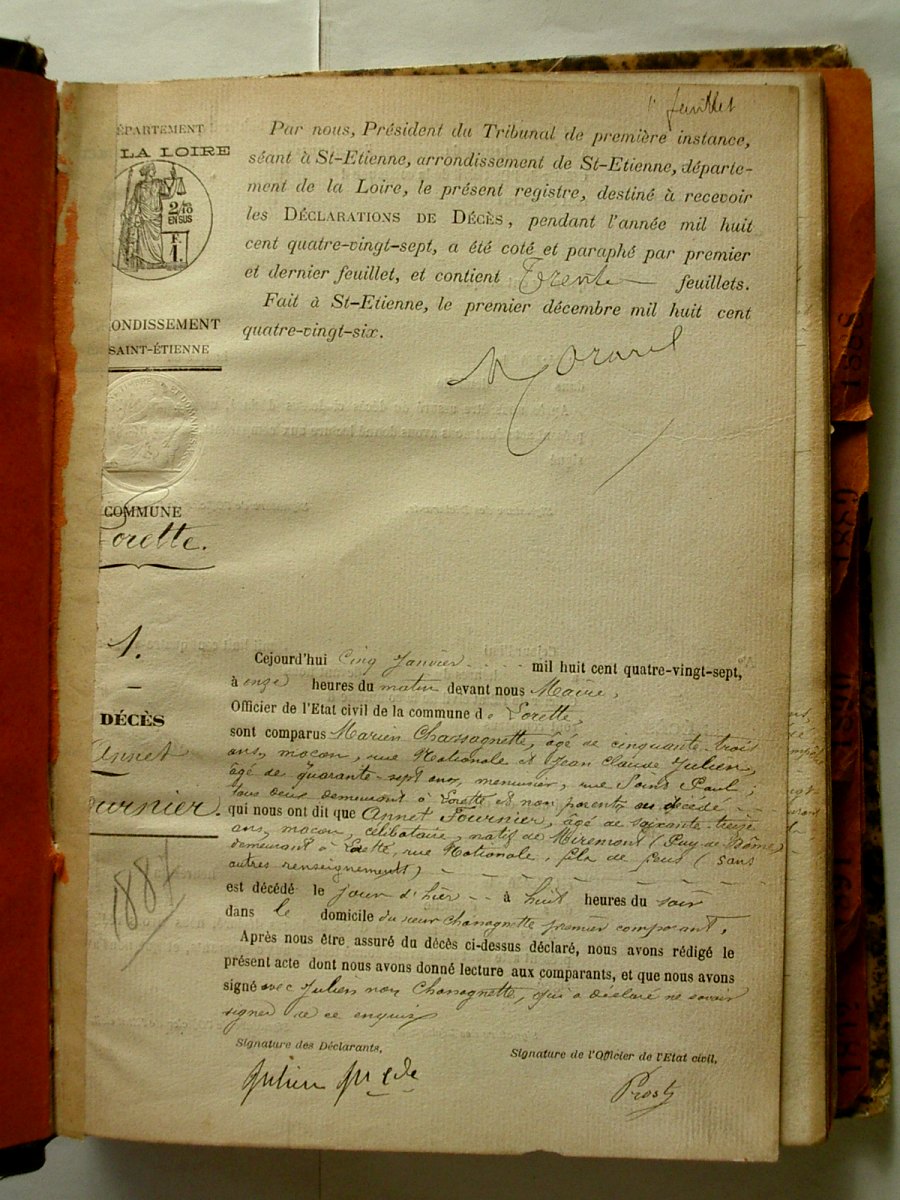 1er feuillet
ÉPARTEMENT
LA LOIRE
2/10
EN SUS
F.
1.
ONDISSEMENT
SAINT-ÉTIENNE
COMMUNE
Lorette.
Par nous, Président du Tribunal de première instance,
séant à St-Etienne, arrondissement de St-Etienne, départe-
ment de la Loire, le présent registre, destiné à recevoir
les DÉCLARATIONS DE DÉCÈS, pendant l'année mil huit
cent quatre-vingt-sept, a été coté et paraphé par premier
et dernier feuillet, et contient Trente feuillets.
Fait à St-Etienne, le premier décembre mil huit cent
quatre-vingt-six.
1.
DÉCÈS
Annet
ournier.
1887
Cejourd'hui Cinq Janvier mil huit cent quatre-vingt-sept,
à onze heures du matin devant nous Maire,
Officier de l'Etat civil de la commune de Lorette,
sont comparus Marien Chassagnette, âgé de cinquante-trois
ans, maçon, rue Nationale et Jean Claude Julien,
âgé de quarante-sept ans, menuisier, rue Saint Paul;
tous deux demeurant à Lorette et non parents au décédé
qui nous ont dit que Annet Fournier, âgé de soixante-treize
ans, maçon, célibataire, natif de Miremont (Puy de Dôme)
demeurant à Lorette, rue Nationale, fils de feus (sans
autres renseignements)
est décédé le jour d'hier à huit heures du soir
dans le domicile du sieur Chassagnette premier comparant.
Après nous être assuré du décès ci-dessus déclaré, nous avons rédigé le
présent acte dont nous avons donné lecture aux comparants, et que nous avons
signé avec Julien non Chassagnette, qui a déclaré ne savoir
signer de ce enquis
Signature des Déclarants,
Signature de l'Officier de l'Etat civil,
Julien
Prost
1888
1889